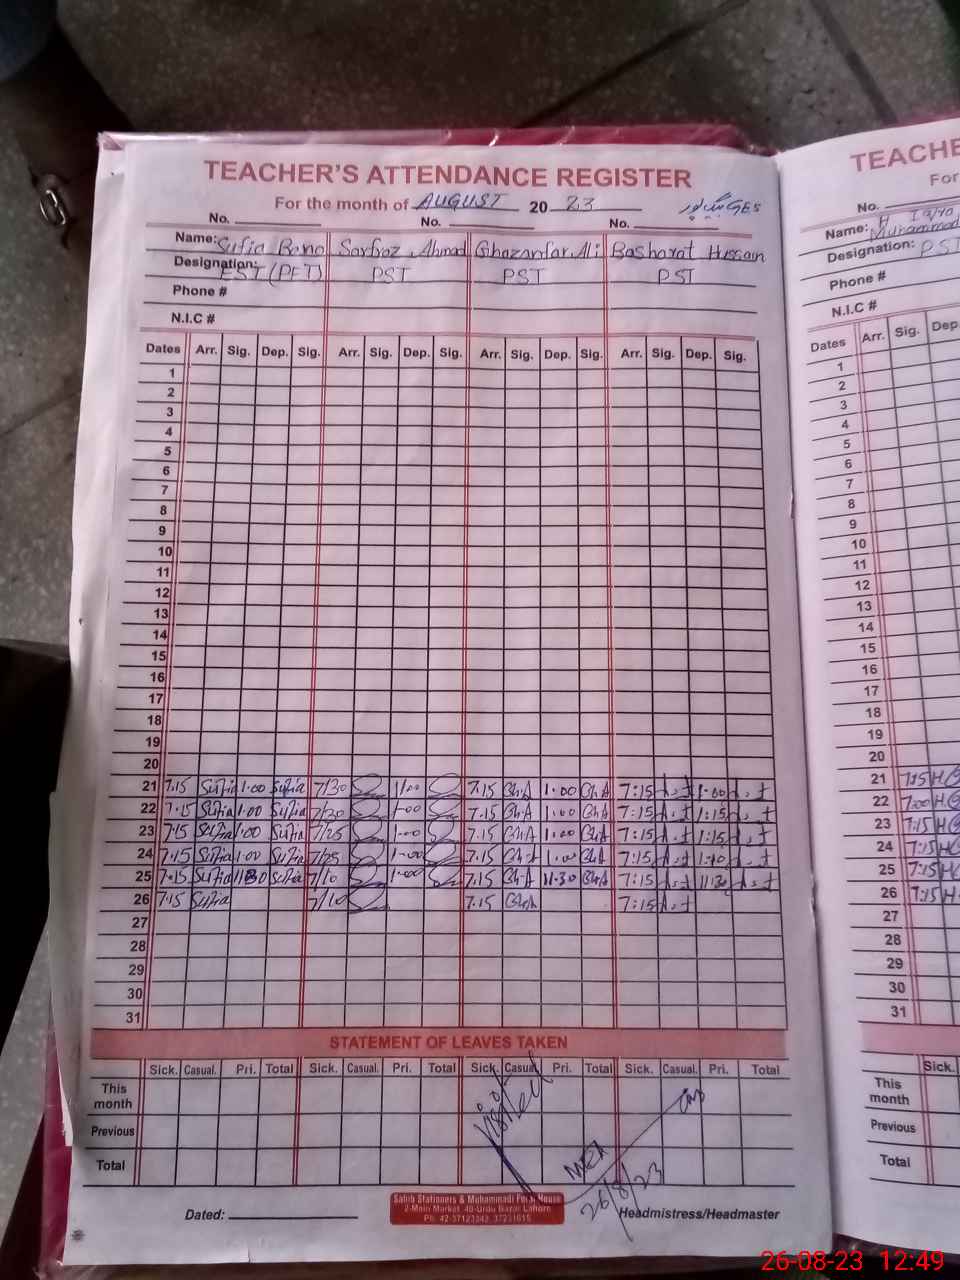 TEACHER'S ATTENDANCE REGISTER
For the month of AUGUST 20 23 GES
No. No. No.
Name: Sufia Bano Sarfraz Ahmad Ghazanfar Ali Basharat Hussain
Designation: EST (PET) PST PST PST
Phone #
N.I.C #
Dates Arr. Sig. Dep. Sig. Arr. Sig. Dep. Sig. Arr. Sig. Dep. Sig. Arr. Sig. Dep. Sig.
1
2
3
4
5
6
7
8
9
10
11
12
13
14
15
16
17
18
19
20
21 7.15 Sufia 1.00 Sufia 7/30 1.00 7.15 Gh.A 1.00 Gh.A 7:15 1.00
22 7.15 Sufia 1.00 Sufia 7/30 1.00 7.15 Gh.A 1.00 Gh.A 7:15 1:15
23 7.15 Sufia 1.00 Sufia 7/25 1.00 7.15 Gh.A 1.00 Gh.A 7:15 1:15
24 7.15 Sufia 1.00 Sufia 7/25 1.00 7.15 Gh.A 1.00 Gh.A 7:15 1:10
25 7.15 Sufia 1130 Sufia 7/10 1.00 7.15 Gh.A 11.30 Gh.A 7:15 11:30
26 7.15 Sufia 7/10 7.15 Gh.A 7:15
27
28
29
30
31
STATEMENT OF LEAVES TAKEN
Sick. Casual. Pri. Total Sick. Casual. Pri. Total Sick. Casual. Pri. Total Sick. Casual. Pri. Total
This month
Previous
Total
Visited
MEA
26/8/23
Dated:
Salih Stationers & Muhammadi Form House
2-Main Market, 40-Urdu Bazar Lahore
Ph: 42-37123242, 37231615
Headmistress/Headmaster
TEACHE
For
No.
Name: Muhammad
Designation: PST
Phone #
N.I.C #
Dates Arr. Sig. Dep
1
2
3
4
5
6
7
8
9
10
11
12
13
14
15
16
17
18
19
20
21 7:15
22 7:00
23 7:15
24 7:15
25 7:15
26 7:15
27
28
29
30
31
Sick.
This month
Previous
Total
26-08-23 12:49